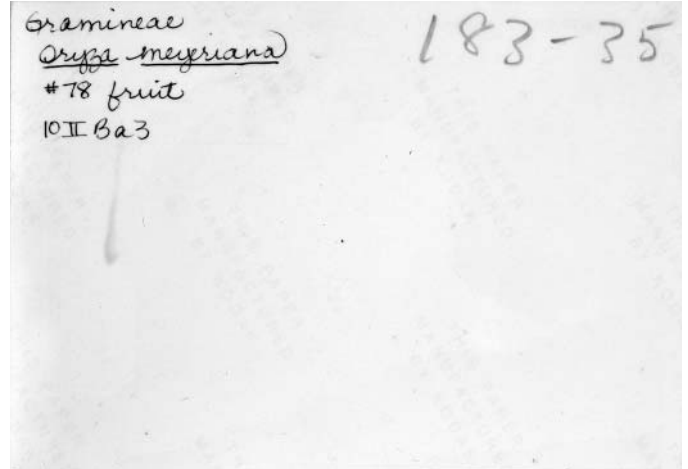 Gramineae
Oryza meyeriana
#78 fruit
10 II Ba3
183-35